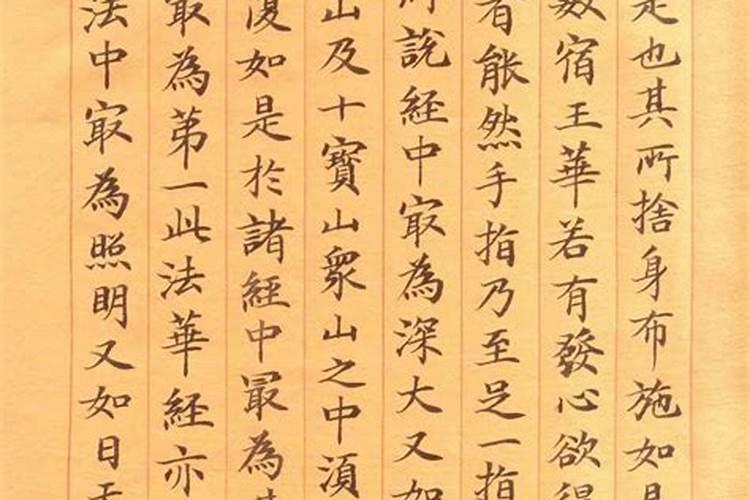 是也其所捨身布施如是
數宿王華若有發心欲得
者能然手指乃至足一指
所說經中㝡為深大又如
山及十寶山眾山之中須
復如是於諸經中最為其
㝡為苐一此法華經亦
法中㝡為照明又如日天